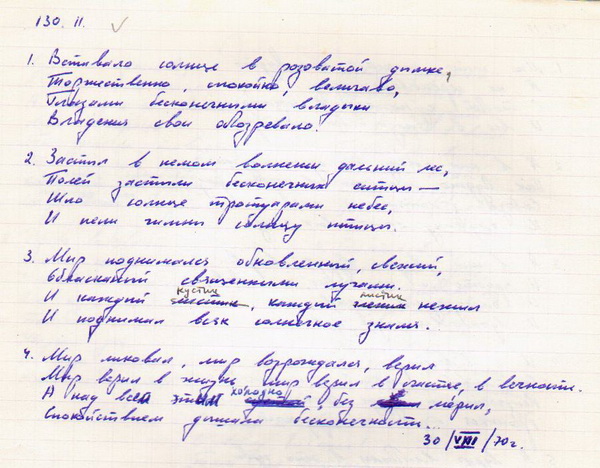 130. II.
1. Вставало солнце в розоватой дымке,
Торжественно, спокойно, величаво,
Глазами бесконечными владыки
Владения свои обозревало.
2. Застыл в немом волненьи дальний лес,
Полей застыли бесконечных ситцы —
Шло солнце тротуарами небес,
И пели гимны солнцу птицы.
3. Мир поднимался обновленный, свежий,
Обласканный священными лучами.
кустик листик
И каждый , каждый нежил
И поднимал всяк солнечное знамя.
4. Мир ликовал, мир возрождался, верил
Мир верил в жизнь, мир верил в счастье, в вечность.
холодно
А над всем этим без мерил,
Спокойствием дышала бесконечность...
30/VIII/70г.